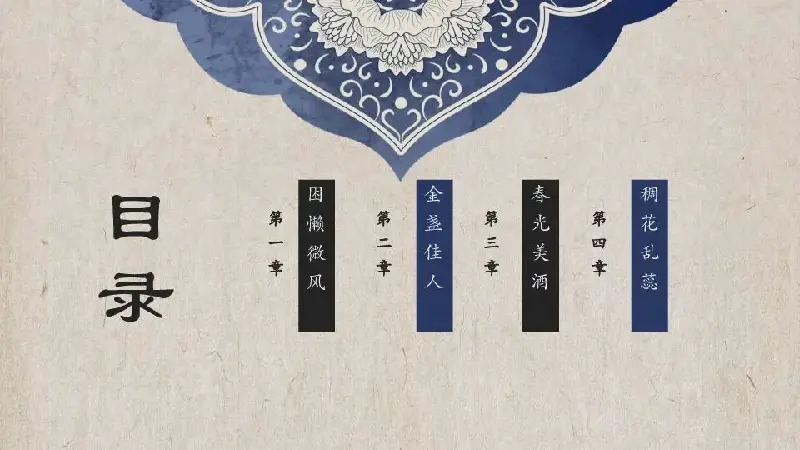 目录
第一章
困懒微风
第二章
金盏佳人
第三章
春光美酒
第四章
稠花乱蕊